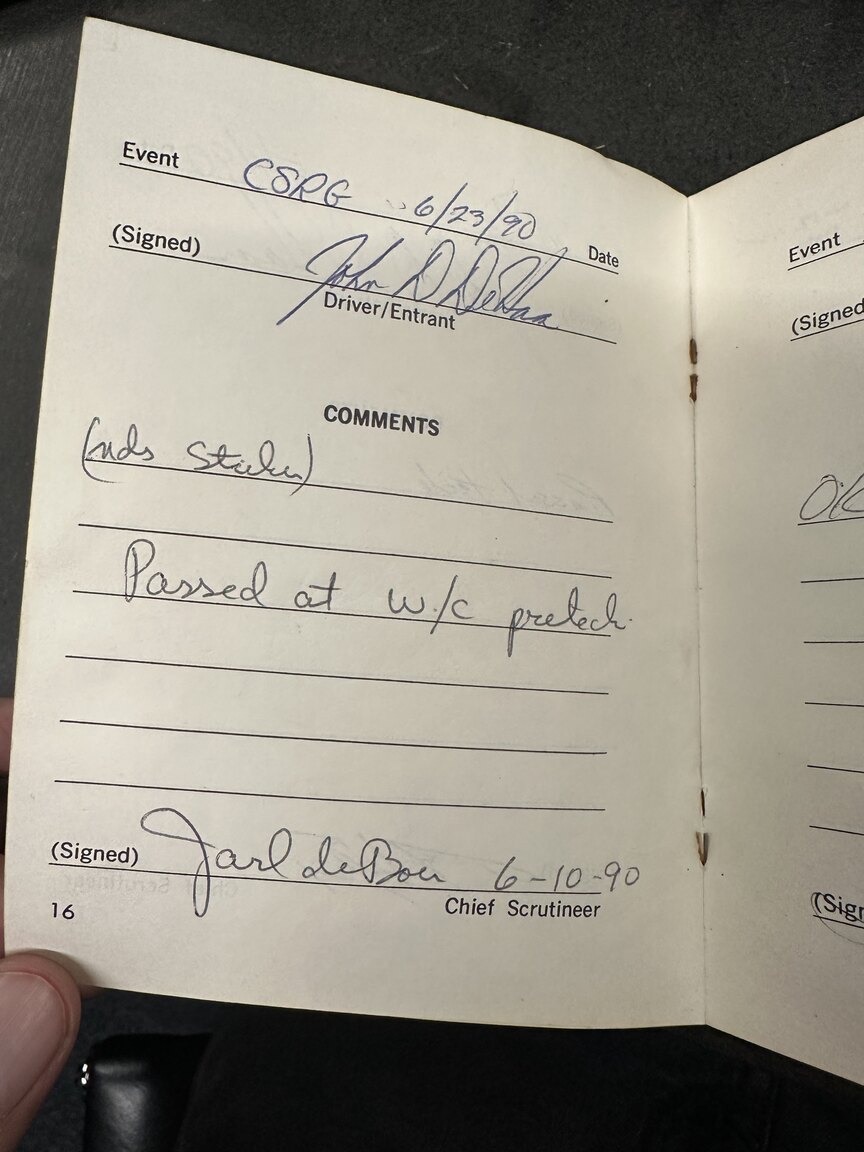 Event CSRG 6/23/90 Date
(Signed) John D DeHaan
Driver/Entrant
COMMENTS
(nds Sticker)
Passed at w/c pretech.
(Signed) Jarl deBoer 6-10-90
16 Chief Scrutineer
Event
(Signed
OK
(Sigr